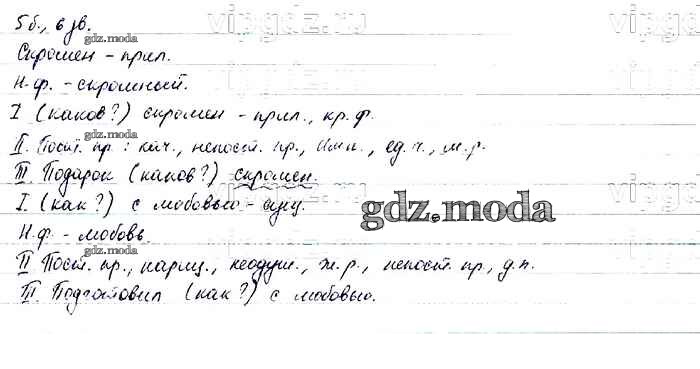 5 б., 6 зв.
Скромен – прил.
Н.ф. – скромный.
I (каков?) скромен – прил., кр. ф.
II. Пост. пр.: кач., непост. пр., Им.п., ед.ч., м.р.
III. Подарок (каков?) скромен.
I. (как?) с любовью – сущ.
Н.ф. – любовь.
II Пост. пр., нариц., неодуш., ж.р., непост. пр., д.п.
III. Подготовил (как?) с любовью.
vipgdz.ru
gdz.moda